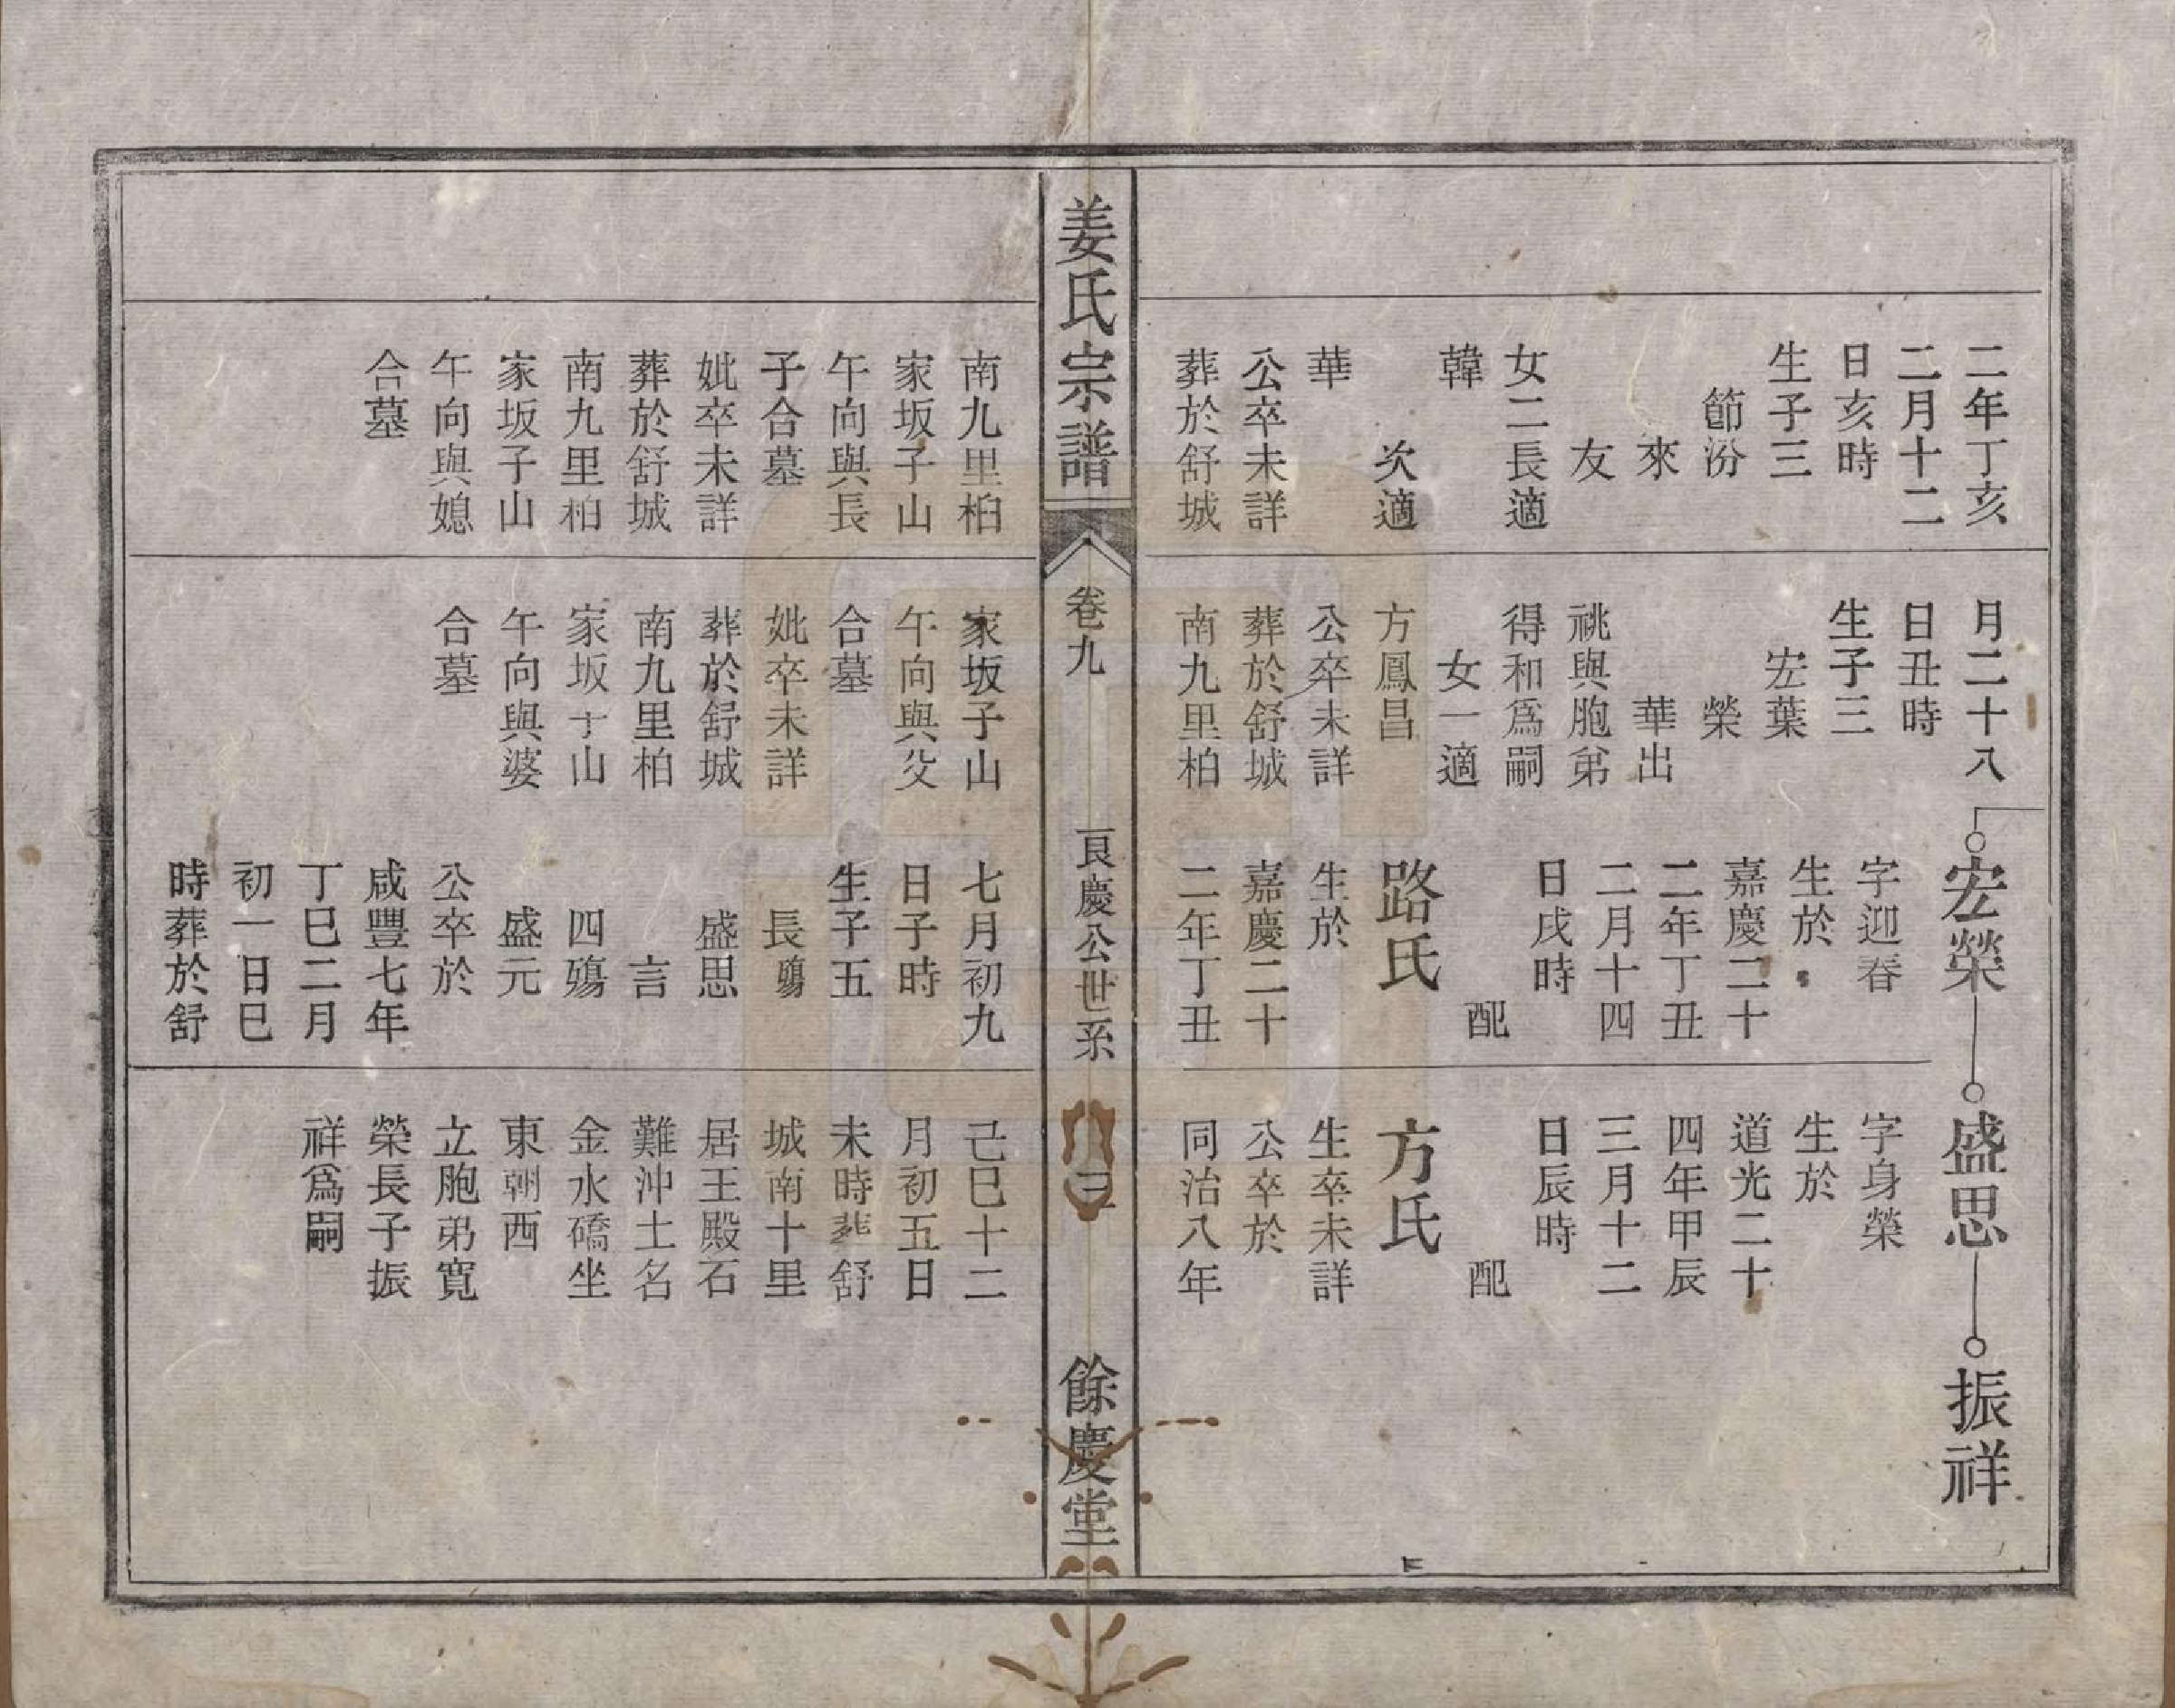 二年丁亥
二月十二
日亥時
生子三
節汾
來
友
女二長適
韓
次適
華
公卒未詳
葬於舒城
月二十八
日丑時
生子三
宏葉
榮
華出
祧與胞弟
得和爲嗣
女一適
方鳳昌
公卒未詳
葬於舒城
南九里柏
宏榮
字迎春
生於
嘉慶二十
二年丁丑
二月十四
日戌時
配
路氏
生於
嘉慶二十
二年丁丑
盛思
字身榮
生於
道光二十
四年甲辰
三月十二
日辰時
配
方氏
生卒未詳
公卒於
同治八年
振祥
姜氏宗譜
卷九
艮慶公世系
三
餘慶堂
南九里柏
家坂子山
午向與長
子合墓
妣卒未詳
葬於舒城
南九里柏
家坂子山
午向與媳
合墓
家坂子山
午向與父
合墓
妣卒未詳
葬於舒城
南九里柏
家坂子山
午向與婆
合墓
七月初九
日子時
生子五
長殤
盛思
言
四殤
盛元
公卒於
咸豐七年
丁巳二月
初一日巳
時葬於舒
己巳十二
月初五日
未時葬舒
城南十里
居王殿石
難沖土名
金水礄坐
東朝西
立胞弟寬
榮長子振
祥爲嗣